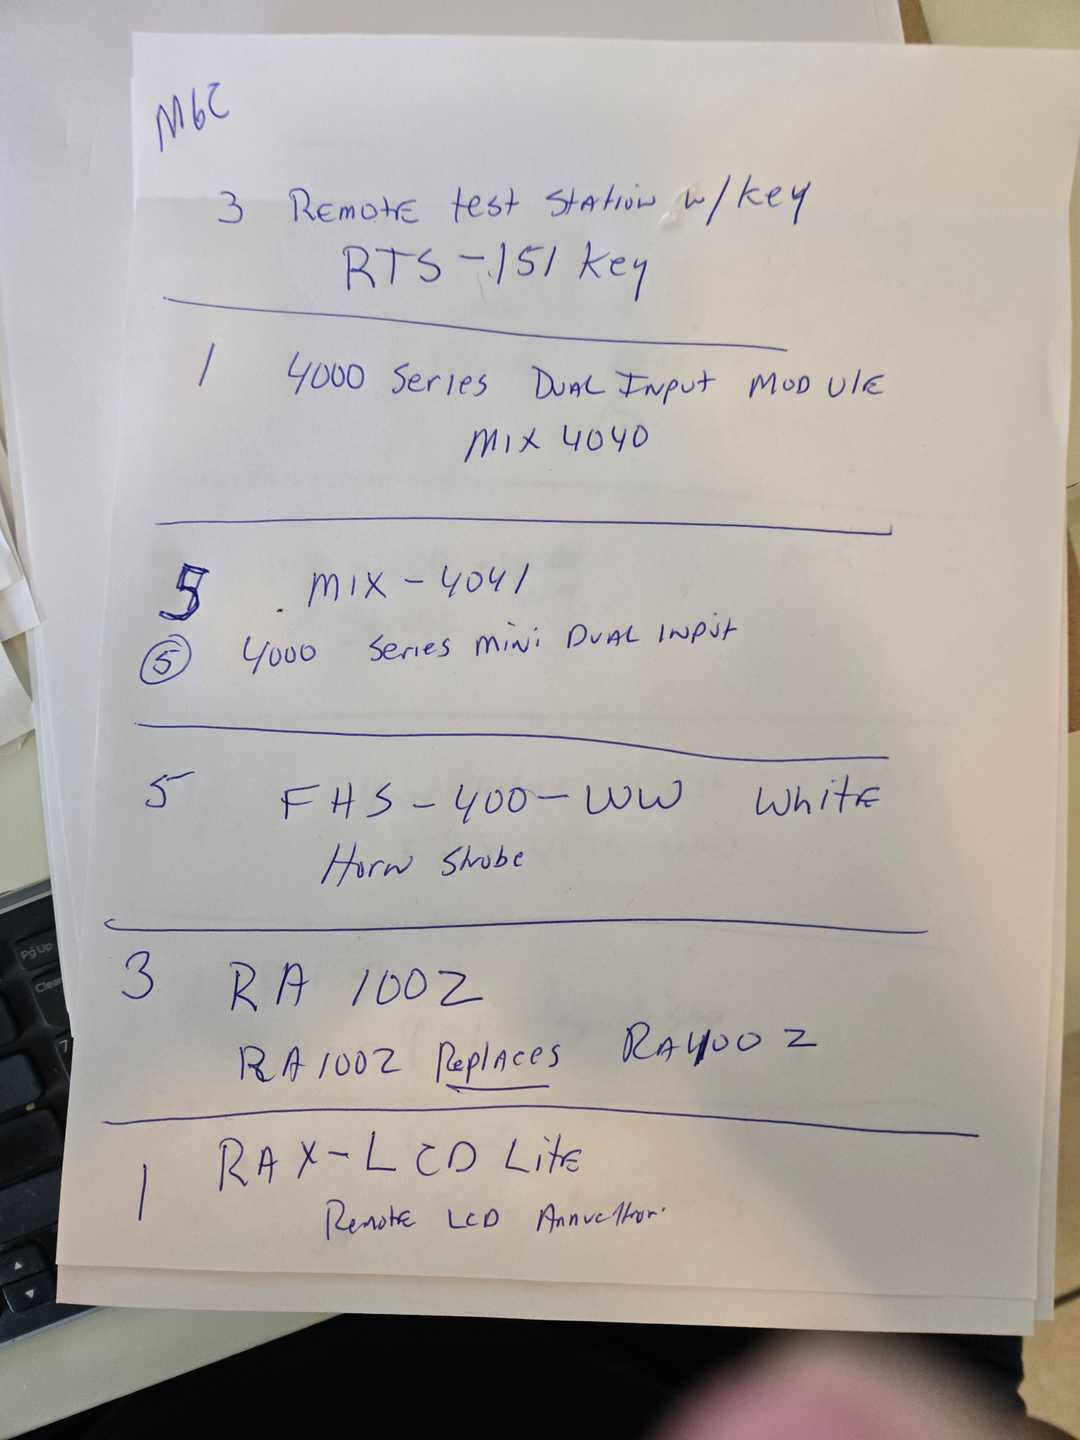 3 Remote test Station w/key
RTS-151 key
1 4000 Series Dual Input Module
Mix 4040
5 Mix-4041
5 4000 Series mini Dual Input
5 FHS-400-WW White
Horn Strobe
3 RA 100Z
RA100Z Replaces RA400Z
1 RAX-LCD Lite
Remote LCD
PgUp
Clear
7